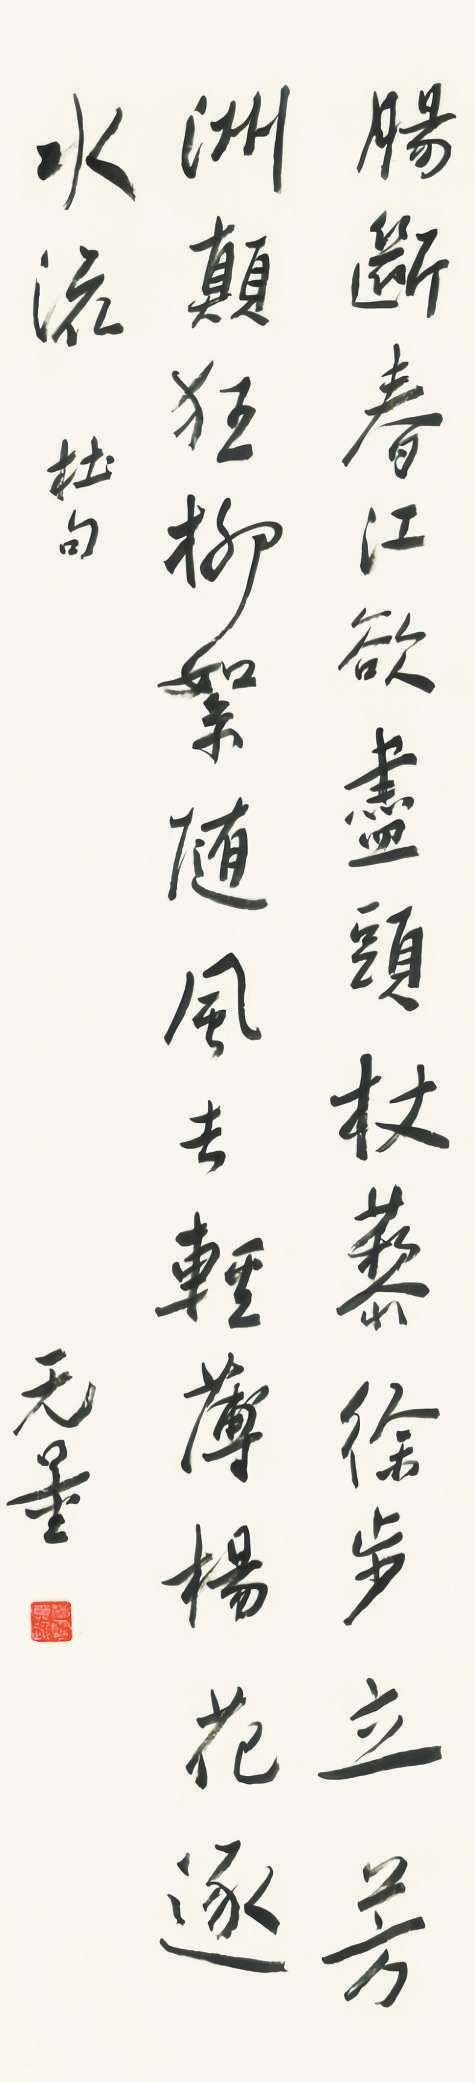 腸斷春江欲盡頭杖藜徐步立芳
洲顛狂柳絮隨風去輕薄楊花逐
水流
杜句
无量